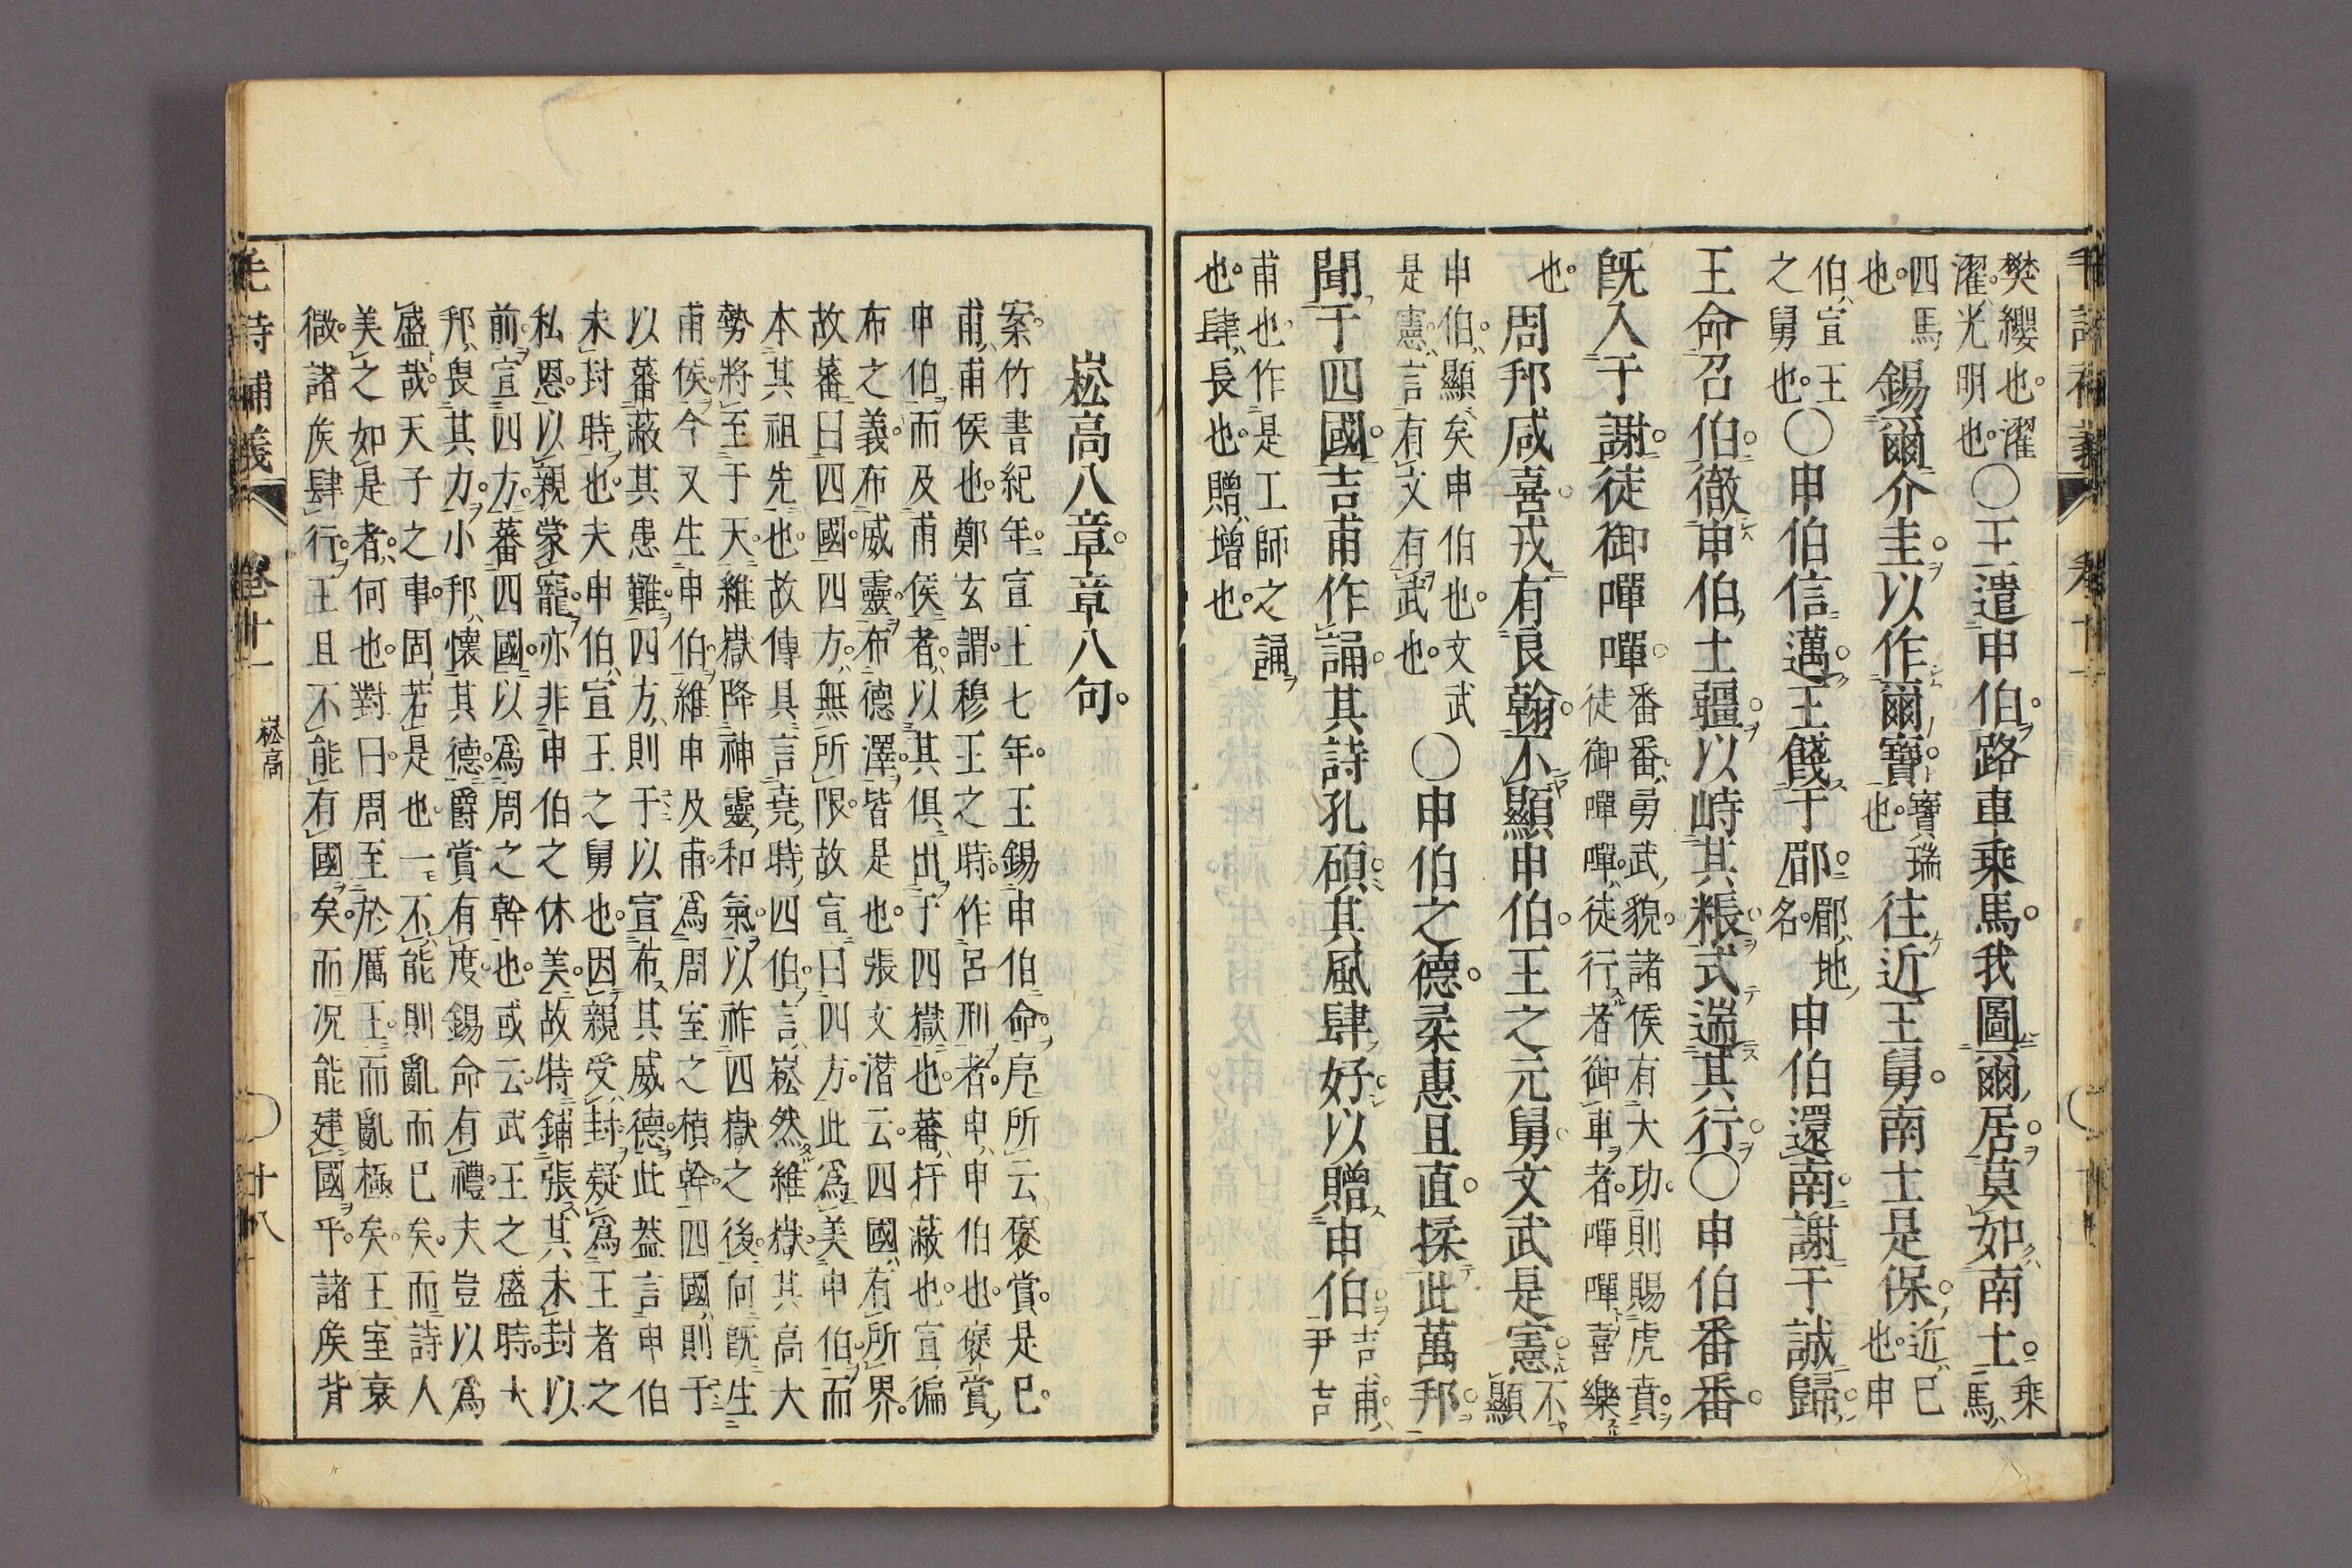 樊纓也。濯
濯、光明也。〇王遣申伯。路車乘馬。我圖爾居。莫如南土。乘馬、
四馬
也。錫爾介圭。以作爾寶。寶、瑞也。往近王舅。南土是保。近、已也。申
伯、宣王
之舅也。〇申伯信邁。王餞于郿。郿、地名。申伯還南。謝于誠歸。
王命召伯。徹申伯土疆。以峙其粻。式遄其行。〇申伯番番。
既入于謝。徒御嘽嘽。番番、勇武貌。諸侯有大功、則賜虎賁。徒御嘽嘽、徒行者御車者。嘽嘽、喜樂
也。周邦咸喜。戎有良翰。不顯申伯。王之元舅。文武是憲。不顯
申伯、顯矣申伯也。文武
是憲、言有文有武也。〇申伯之德。柔惠且直。揉此萬邦。
聞于四國。吉甫作誦。其詩孔碩。其風肆好。以贈申伯。吉甫、尹吉
甫也。作是工師之誦
也。肆、長也。贈、增也。
崧高八章。章八句。
案竹書紀年。宣王七年。王錫申伯命。序所云褒賞。是已。
甫、甫侯也。鄭玄謂。穆王之時。作呂刑者。申、申伯也。褒賞
申伯、而及甫侯者、以其俱出于四嶽也。蕃、扞蔽也。宣、徧
布之義。布威靈、布德澤、皆是也。張文潛云。四國、有所界。
故蕃曰四國。四方、無所限。故宣曰四方。此爲美申伯。而
本其祖先也。故傳具言堯時四伯。言崧然維嶽。其高大
勢將至于天。維嶽降神靈和氣。以祚四嶽之後。向既生
甫侯。今又生申伯。維申及甫。爲周室之楨幹。四國、則于
以蕃蔽其患難。四方、則于以宣布其威德。此蓋言申伯
未封時也。夫申伯、宣王之舅也。因親受封、疑爲王者之
私恩。以親蒙寵、亦非申伯之休美。故特鋪張其未封以
前。宣四方。蕃四國。以爲周之幹也。或云。武王之盛時。大
邦、畏其力。小邦、懷其德。爵賞有度。錫命有禮。夫豈以爲
盛哉。天子之事。固若是也。一不能則亂而已矣。而詩人
美之如是者、何也。對曰。周至於厲王。而亂極矣。王室衰
微。諸侯肆行。王且不能有國矣。而況能建國乎。諸侯背
毛詩補義 卷十一 崧高 〇十八